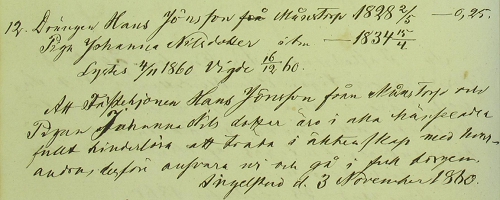 12. Drängen Hans Jönsson från Munstorp 1828 2/5 — 0,25.
Pigan Johanna Nilsdotter — 1834 15/4
Lystes 4/11 1860 Vigde 16/12 60.
Att Fästehjonen Hans Jönsson från Munstorp och
Pigan Johanna Nils dotter äro i alla hänseender
fullt hinderlösa att träda i äktenskap med hvar-
andra, derför ansvara vi och gå i full borgen.
Ingelstad d. 3 November 1860.